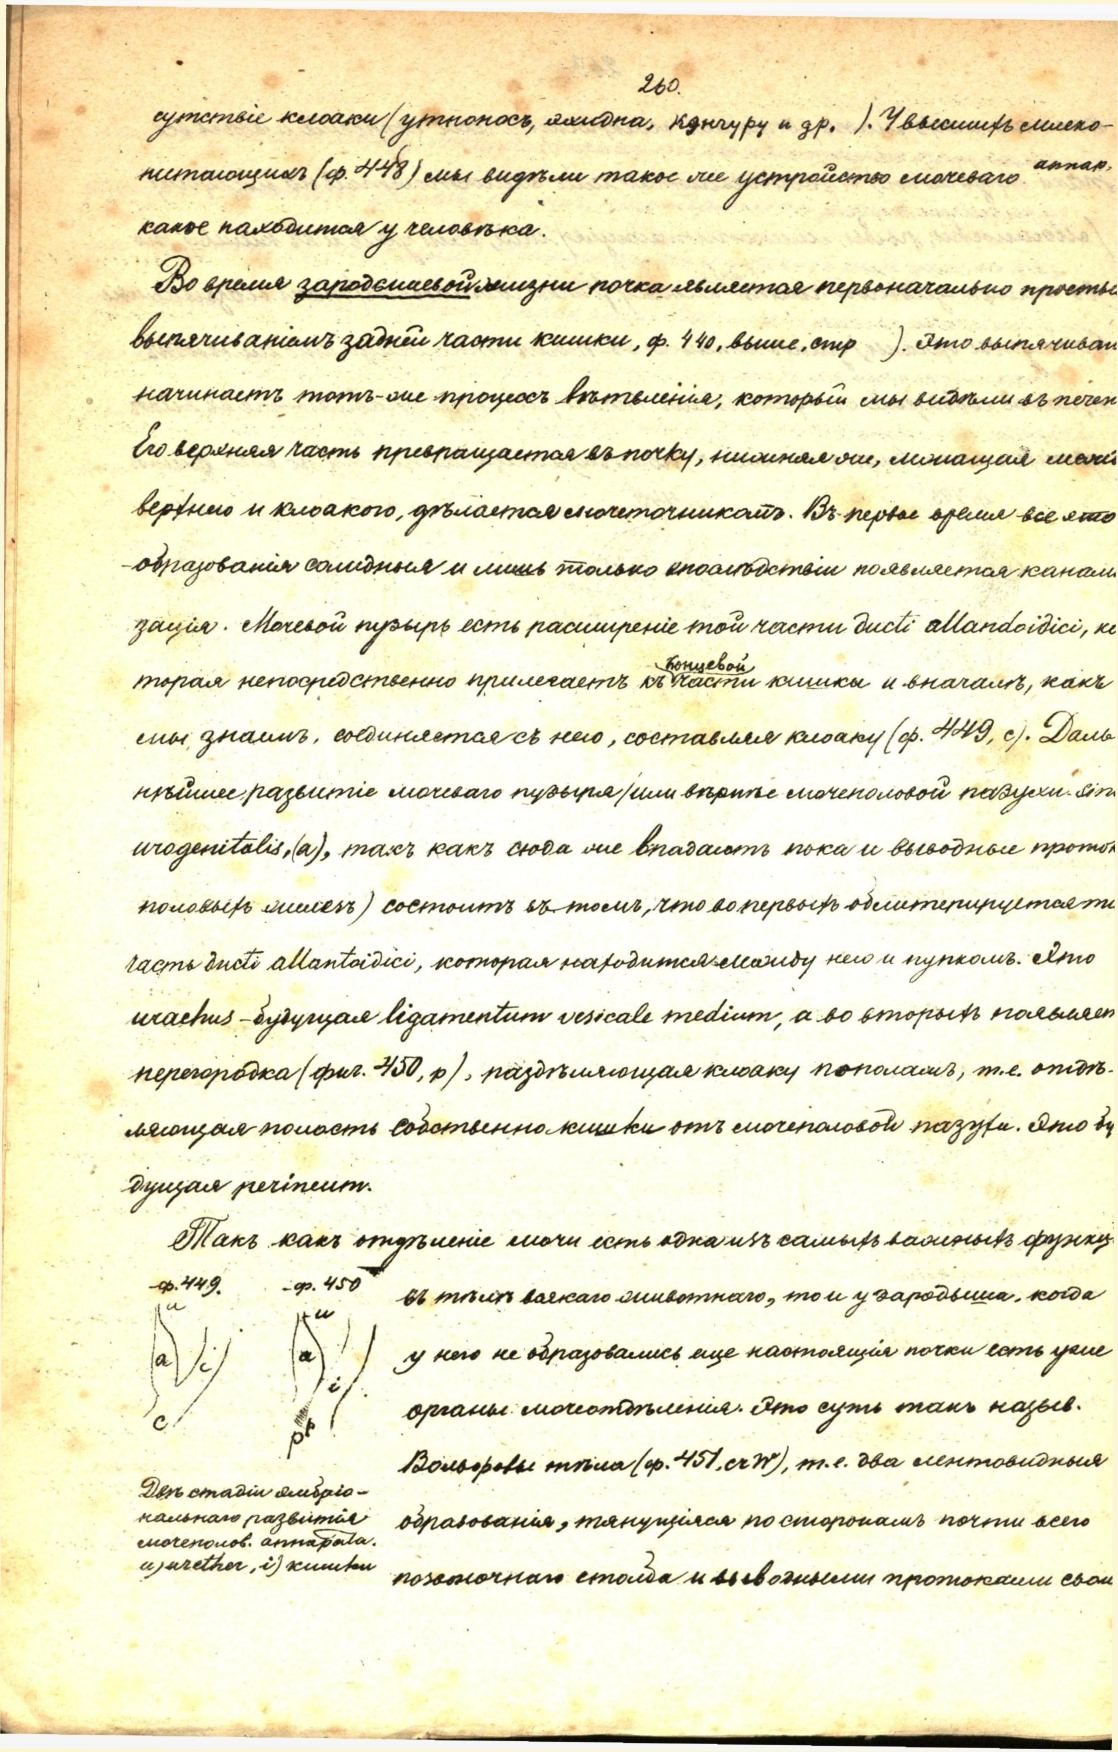 260.
сутствіе клоаки (утконосъ, эхидна, кэнгуру и др. ). У высшихъ млеко-
питающихъ (ф. 448) мы видѣли такое же устройство мочеваго аппар.
какое находится у человѣка.
Во время зародышевой жизни почка является первоначально просты
выпячиваніемъ задней части кишки, ф. 440, выше, стр ). Это выпячиван
начинаетъ тотъ-же процессъ вѣтвленія, который мы видѣли въ печен
Его верхняя часть превращается въ почку, нижняя же, лежащая между
верхнею и клоакою, дѣлается мочеточникомъ. Въ первое время все это
образованія солидныя и лишь только впослѣдствіи появляется канали
зація. Мочевой пузырь есть расширеніе той части ducti allandoidici, ко
торая непосредственно прилегаетъ къ концевой части кишки и вначалѣ, какъ
мы знаемъ, соединяется съ нею, составляя клоаку (ф. 449, с). Даль
нѣйшее развитіе мочеваго пузыря (или вѣрнѣе мочеполовой пазухи. sin.
urogenitalis, (а), такъ какъ сюда же впадаютъ пока и выводные проток
половыхъ железъ) состоитъ въ томъ, что во первыхъ облитерируется та
часть ducti allantoidici, которая находится между нею и пупкомъ. Это
urachus – будущая ligamentum vesicale medium, а во вторыхъ появляет
перегородка (фиг. 450, р), раздѣляющая клоаку пополамъ, т.е. отдѣ-
ляющая полость собственно кишки отъ мочеполовой пазухи. Это бу
дущая perineum.
Такъ какъ отдѣленіе мочи есть одна изъ самыхъ важныхъ функц
ф. 449. ф. 450
въ тѣлѣ всякаго животнаго, то и у зародыша, когда
у него не образовались еще настоящія почки есть уже
органы мочеотдѣленія. Это суть такъ назыв.
Вольфовы тѣла (ф. 451, cr W), т.е. два лентовидныя
образованія, тянущіяся по сторонамъ почти всего
позвоночнаго столба и выводными протоками свои
u
a i
c
u
a
i
p
Двѣ стадіи эмбріо-
нальнаго развитія
мочеполов. аппарата.
u) urether, i) кишки